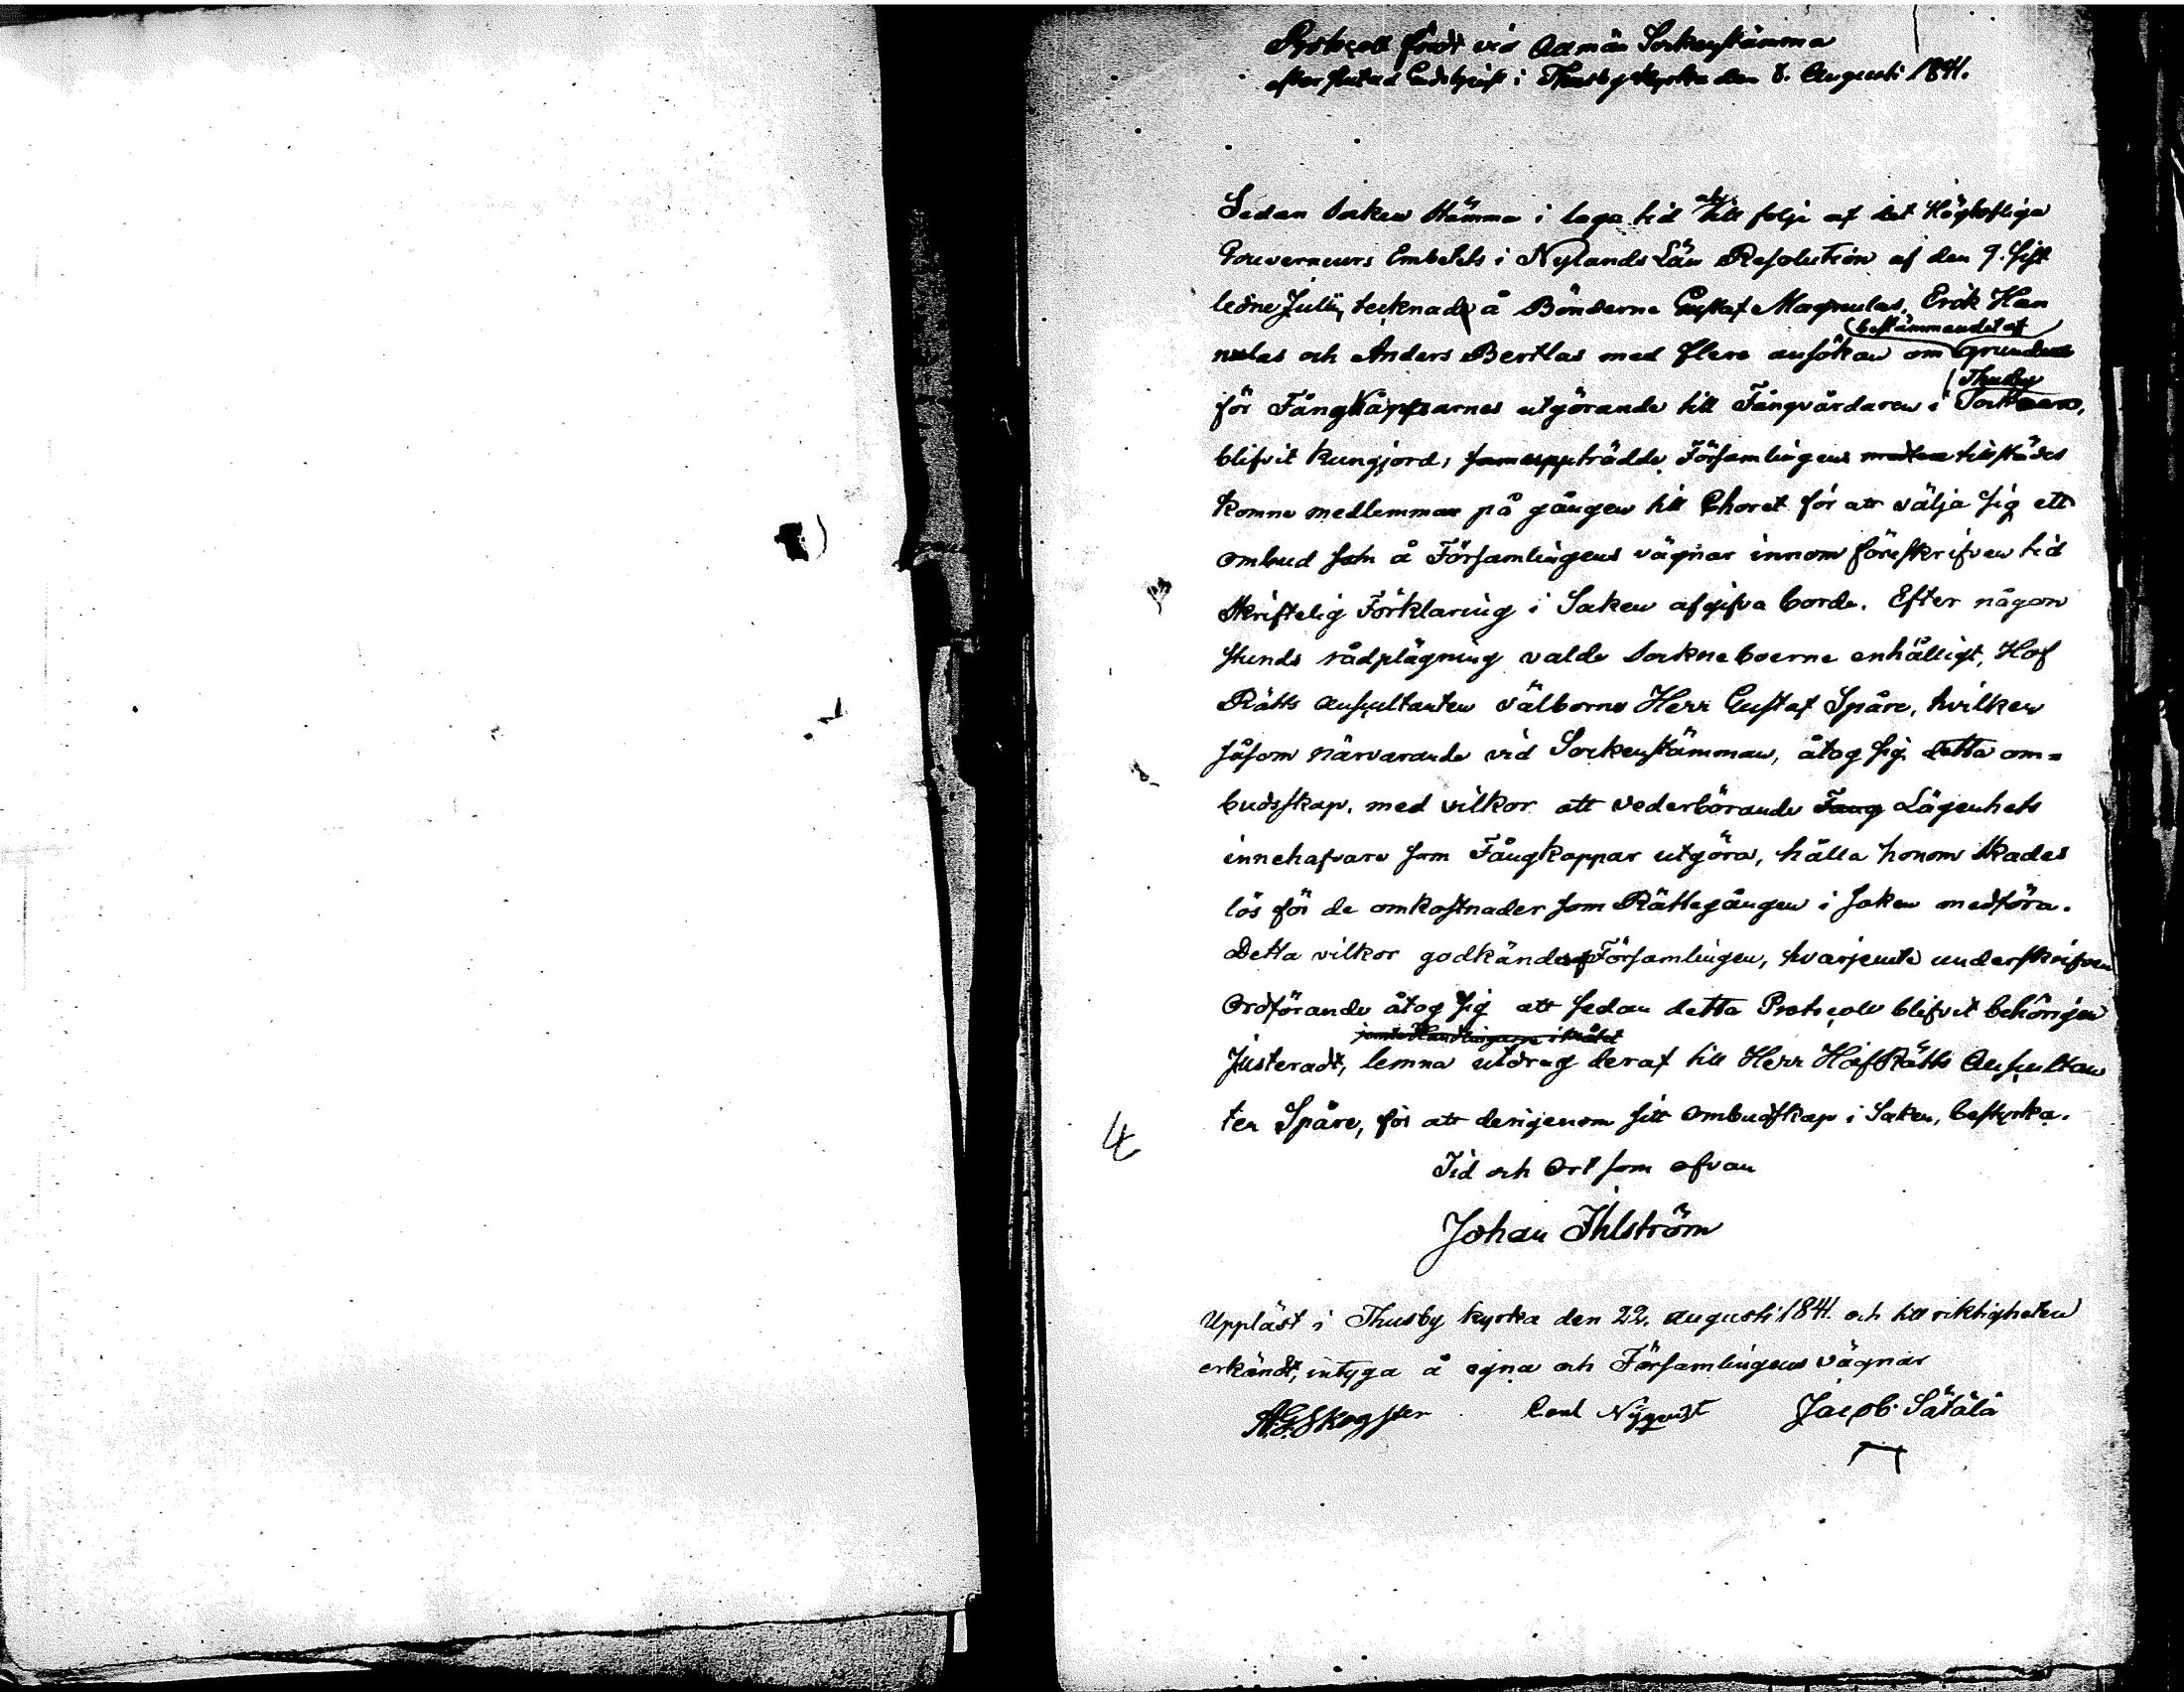 Protocoll fördt vid Allmän Sockenstämma
efter slutad Gudstjenst i Thusby Kyrka den 8. Augusti 1841.
Sedan Socken Stämma i laga tid till följe af det Höglofliga
Gouverneurs Embetets i Nylands Län Resolution af den 9. sist
ledne Julii, tecknade å Bönderne Gustaf Magnulas, Erik Han
bestämmandet af
nulas och Anders Bertlas med flere ansökan om grunderne
Thusby
för Fångkapparnes utgörande till Fångvårdaren i Socken,
blifvit kungjord, uppträdde Församlingens tillstädes
komne medlemmar på gången till Choret för att välja sig ett
ombud som å Församlingens vägnar innom föreskrifven tid
Skriftelig Förklaring i Saken afgifva borde. Efter någon
stunds rådplägning valde Sockneboerne enhälligt, Hof
Rätts Auscultanten Välborne Herr Gustaf Spåre, hvilken
såsom närvarande vid Sockenstämman, åtog sig detta om=
budsskap, med vilkor att vederbörande Fång Lägenhets
innehafvare som Fångkappar utgöra, hålla honom skades
lös för de omkostnader som Rättegången i saken medföra.
Detta vilkor godkändes af Församlingen, hvarjemte underskrifven
Ordförande åtog sig att sedan detta Protocoll blifvit behörigen
jemte Handlingarne i målet
Justeradt, lemna utdrag deraf till Herr HofRätts Auscultan
ten Spåre, för att derigenom sitt ombudskap i Saken, bestyrka.
Tid och Ort som ofvan
Johan Ihlström
Uppläst i Thusby kyrka den 22. augusti 1841. och till riktigheten
erkändt, intyga å egna och Församlingens vägnar
A.G. Skogster Carl Nyqvist Jacob Sätälä